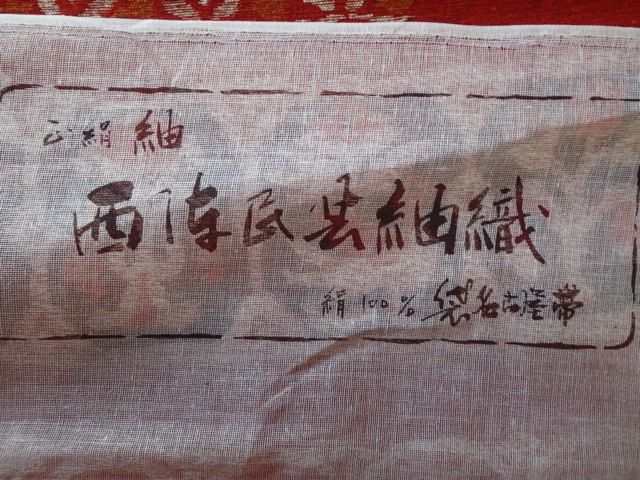 正絹 紬
西陣民芸紬織
絹100% 袋名古屋帯